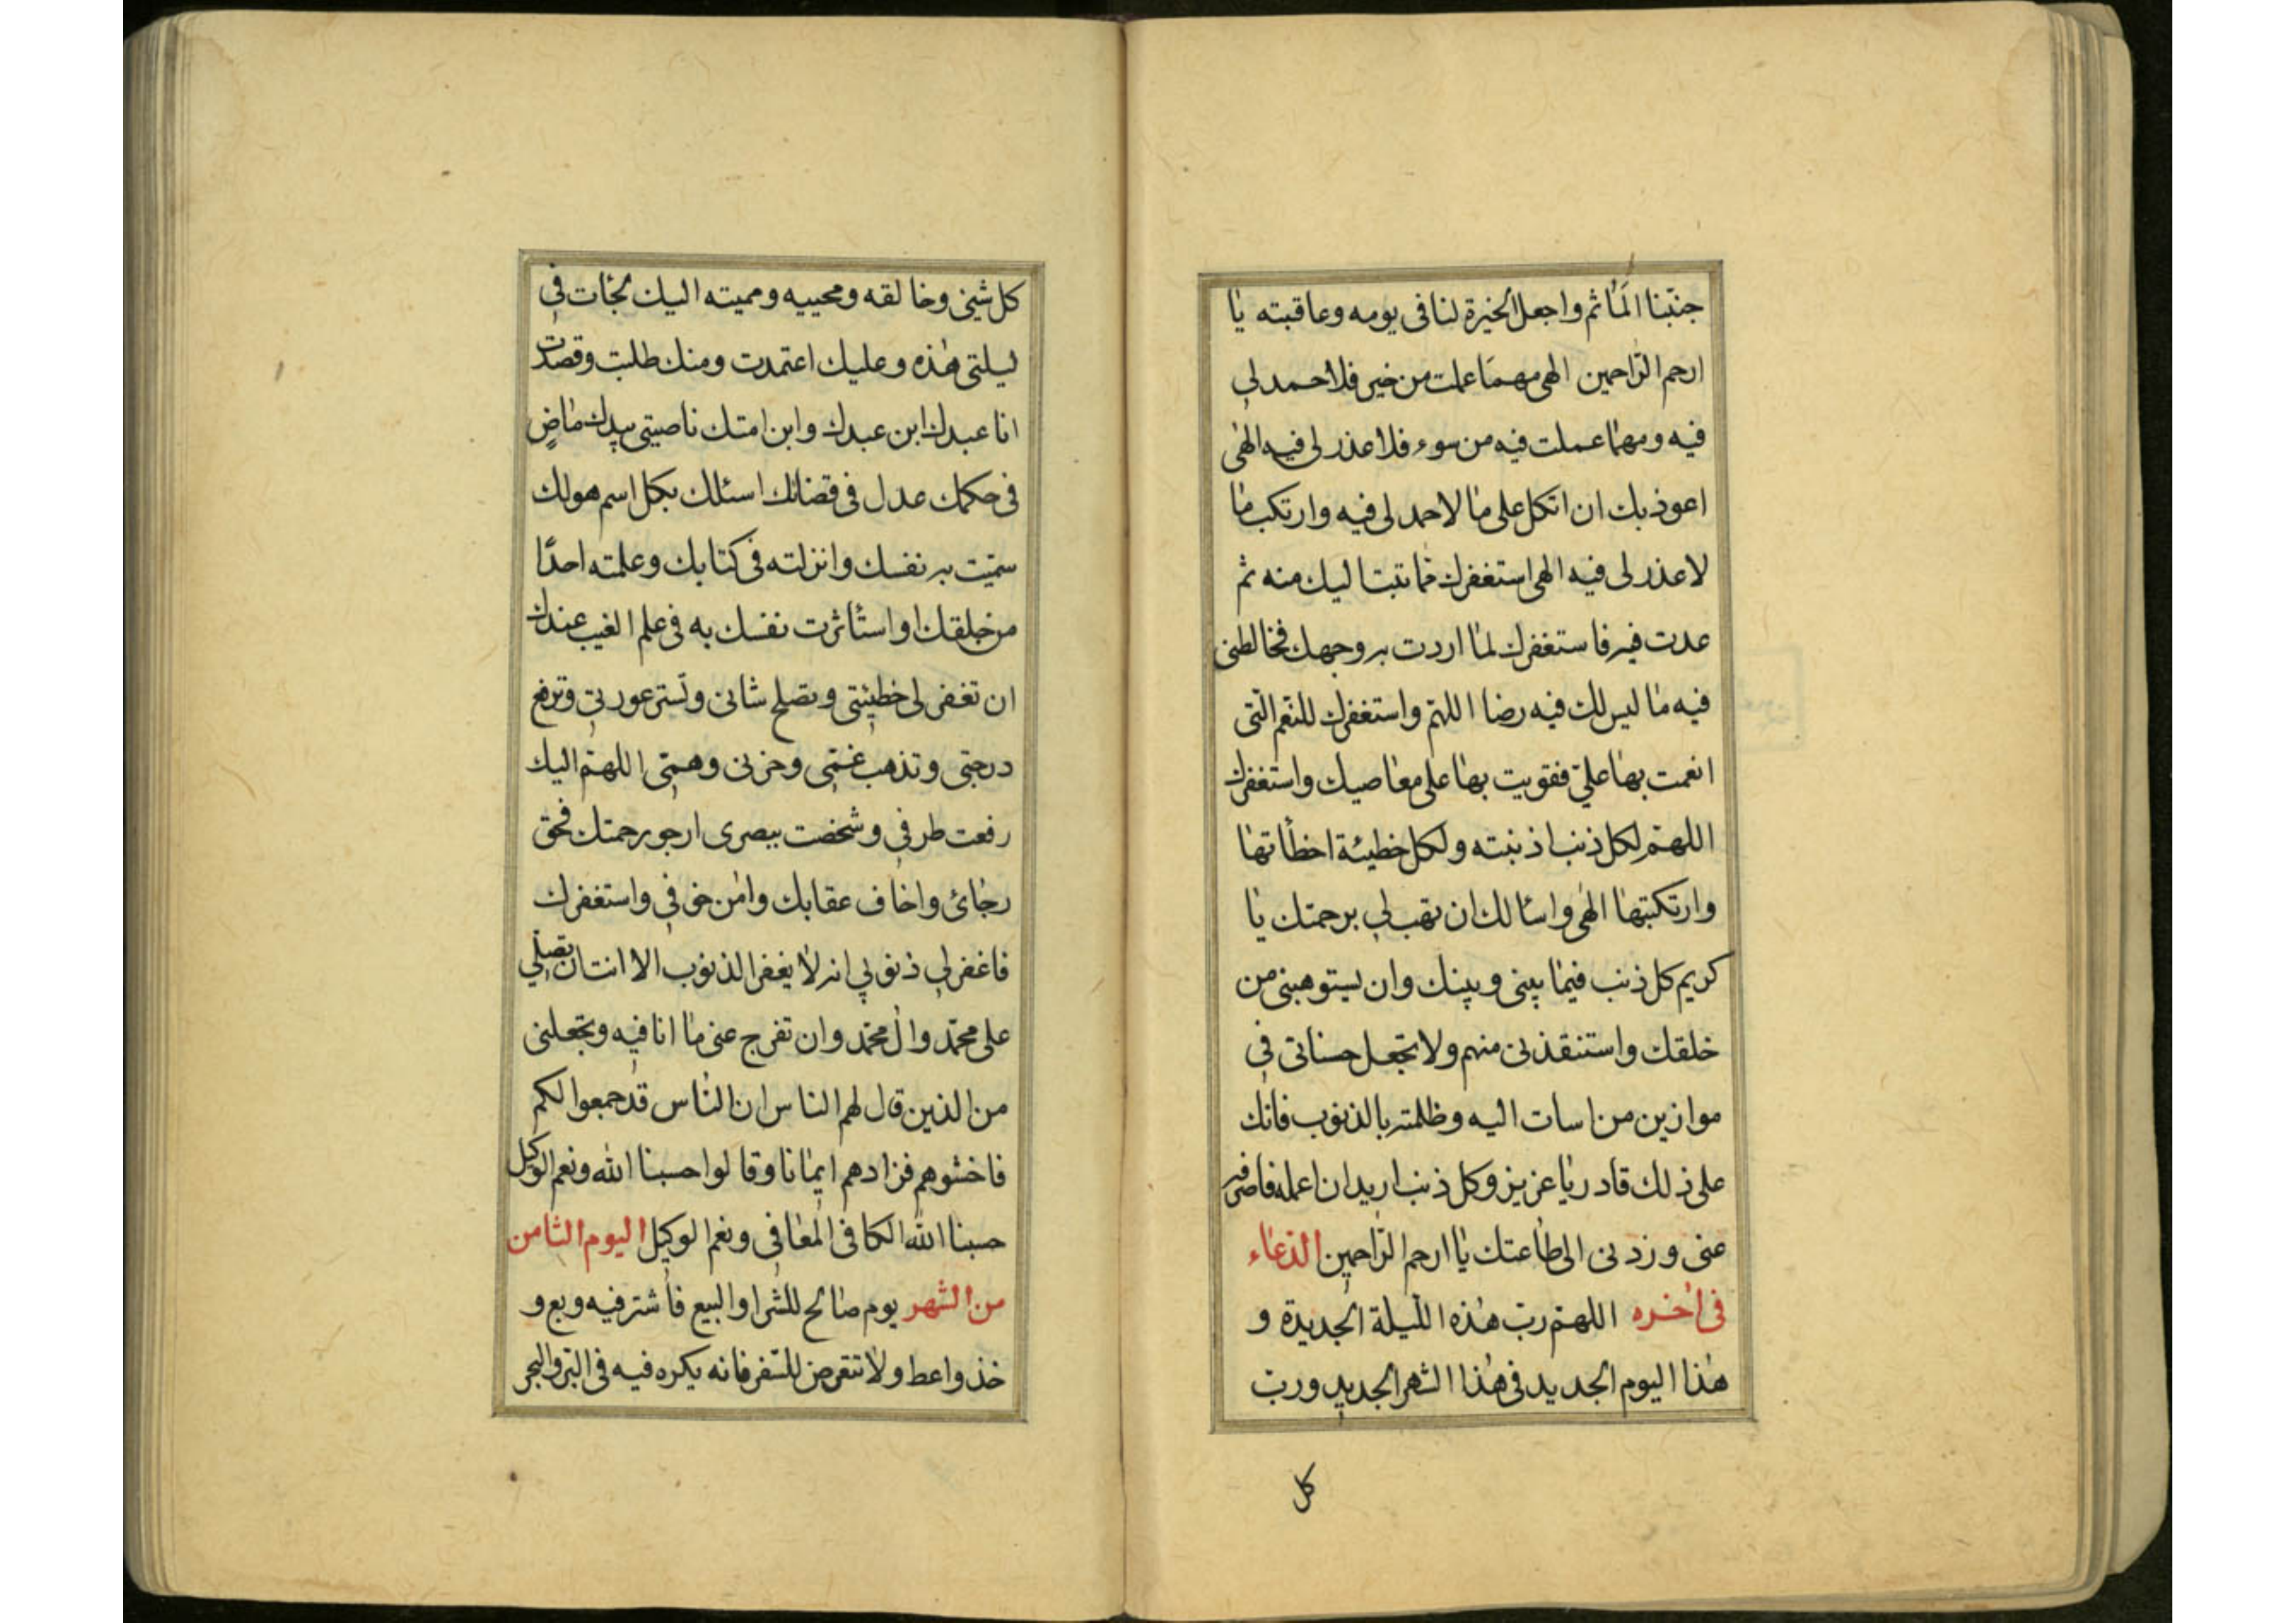 جنّبنا المَاٰثم واجعل الخيرة لنا فى يومه وعاقبته يٰا
ارحم الرّاحمين الهى مهمَا عملت من خير فلا حمد لى
فيه ومهمٰا عملت فيه من سوء فلا عذر لى فيه الهٰى
اعوذ بك ان اتكل على مٰا لا حمد لى فيه وارتكب مٰا
لا عذر لى فيه الهى استغفرك ممّا تبت اليك منه ثم
عدت فيه فاستغفرك لمٰا اردت به وجهك فخالطنى
فيه مٰا ليس لك فيه رضا اللهمّ واستغفرك للنعّم الّتى
انعمت بهٰا علىّ فقويت بهٰا على معٰاصيك واستغفرك
اللهمّ لكل ذنب اذنبته ولكل خطيئة اخطأتهٰا
وارتكبتهٰا الهٰى واسٰالك ان تهب لى برحمتك يٰا
كريم كل ذنب فيمٰا بينى وبينك وان يستوهبنى من
خلقك واستنقذنى منهم ولا تجعل حسناتى فى
موازين من اسات اليه وظلمته بالذنوب فانّك
على ذلك قادر يٰا عزيز وكل ذنب اريد ان اعمله فاصرفه
عنى وزدنى الى طٰاعتك يٰا ارحم الرّاحمين الدّعٰاء
فى اٰخره اللهمّ ربّ هٰذه اللّيلة الجديدة و
هٰذا اليوم الجديد فى هٰذا الشهر الجديد وربّ
كل
كل شئ وخالقه ومحييه ومميته اليك لجئات فى
ليلتى هٰذه وعليك اعتمدت ومنك طلبت وقصدت
انا عبدك ابن عبدك وابن امتك ناصيتى بيدك مٰاضٍ
فى حكمك عدل فى قضائك اسئلك بكل اسم هو لك
سمّيت به نفسك وانزلته فى كتابك وعلمته احدًا
من خلقك او استاثرت نفسك به فى علم الغيب عندك
ان تغفر لى خطيئتى وتصلح شانى وتستر عورتى وترفع
درجتى وتذهب غمّى وحزنى وهمّى اللهمّ اليك
رفعت طرفى وشخصت ببصرى ارجو رحمتك فحقق
رجٰائ واخٰاف عقابك وامٰن خوفى واستغفرك
فاغفر لى ذنوبى انه لاٰ يغفر الذنوب الا انت ان تصلّى
على محمّد واٰل محمّد وان تفرج عنى مٰا انا فيه وتجعلنى
من الذين قال لهم الناس ان النّاس قد جمعوا لكم
فاخشوهم فزادهم ايمٰانا وقالوا حسبنا الله ونعم الوكيل
حسبنا الله الكافى المعٰافى ونعم الوكيل اليوم الثامن
من الشهر يوم صٰالح للشرا والبيع فاشتر فيه وبع و
خذ واعط ولاٰ تتعرض للسّفر فانه يكره فيه فى البّر والبحر